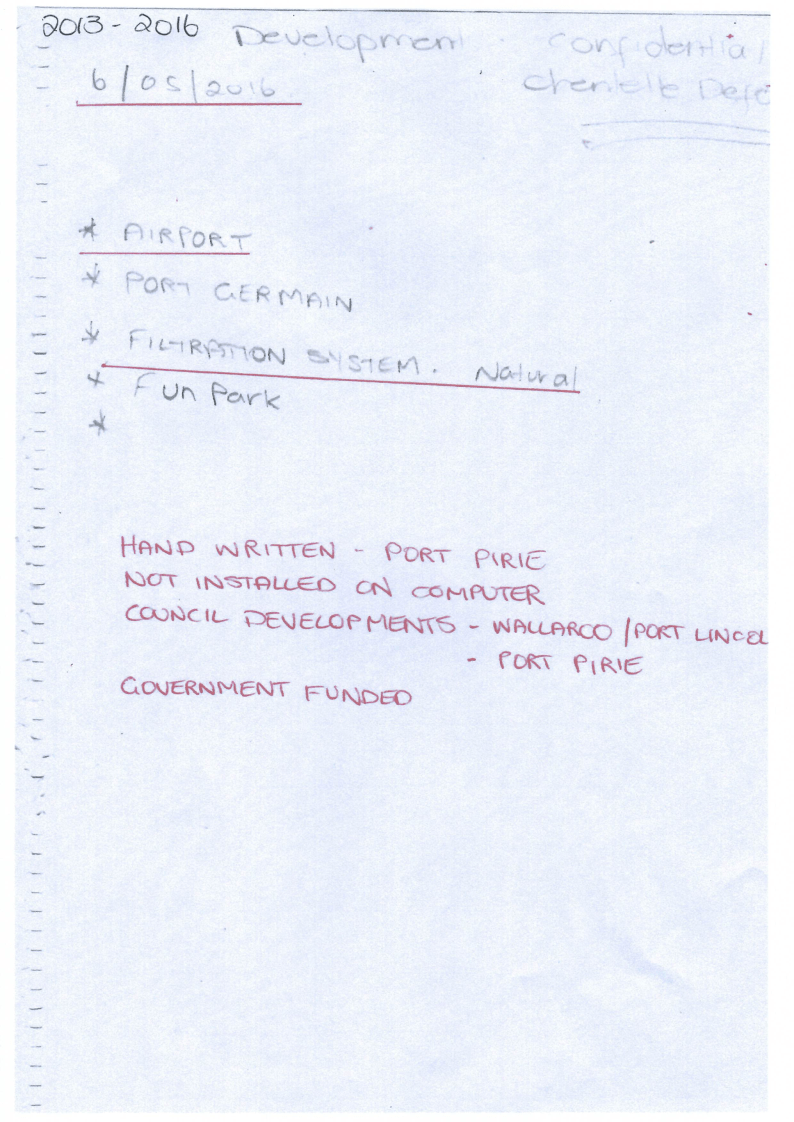 2013 - 2016 Development confidential
6/05/2016 Chentelle
* AIRPORT
* PORT GERMAIN
* FILTRATION SYSTEM. Natural
* Fun Park
*
HAND WRITTEN - PORT PIRIE
NOT INSTALLED ON COMPUTER
COUNCIL DEVELOPMENTS - WALLAROO / PORT LINCOL
- PORT PIRIE
GOVERNMENT FUNDED